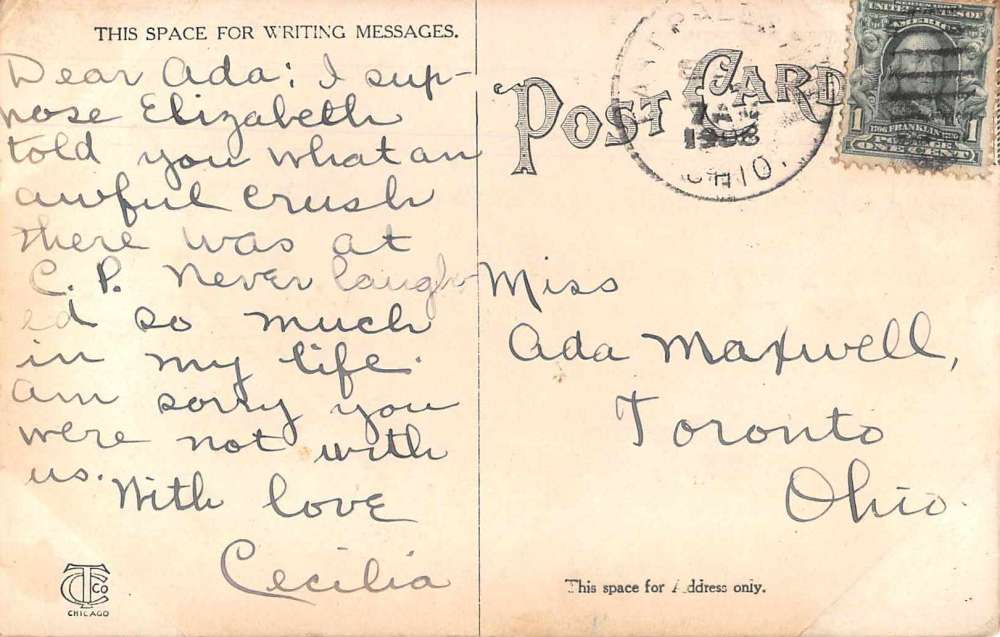 THIS SPACE FOR WRITING MESSAGES.
Dear Ada: I sup-
pose Elizabeth
told you what an
awful crush
there was at
C. P. Never laugh-
ed so much
in my life.
Am sorry you
were not with
us.
With love
Cecilia
CT Co
CHICAGO
POST CARD
1908
OHIO.
UNITED STATES OF
AMERICA
1 1
FRANKLIN
POSTAGE
ONE CENT
Miss
Ada Maxwell,
Toronto
Ohio.
This space for Address only.